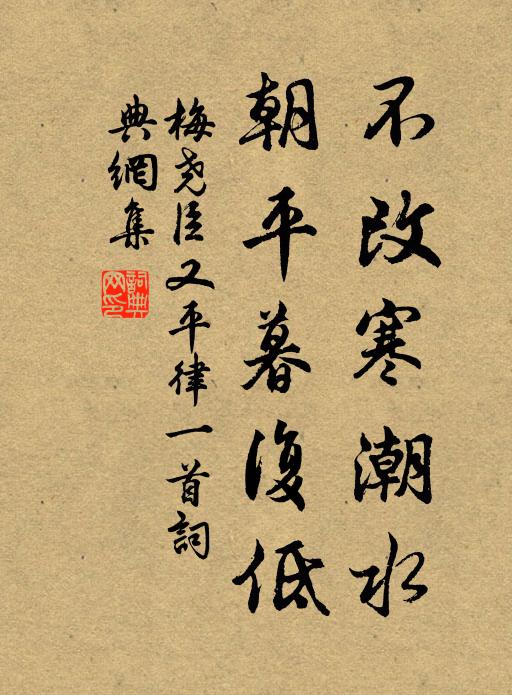 不改寒潮水
朝平暮復低
梅尧臣又平律一首詞
典網集
詞典網印